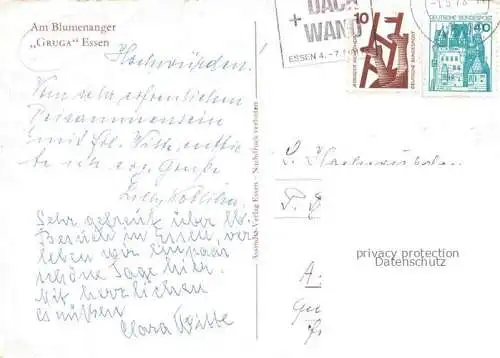 Am Blumenanger
„GRUGA“ Essen
Hochwürden!
Vom sehr erfreulichen
Beisammensein
mit Frl. Witte, entbie-
te ich erg. Grüße
Sehr gefreut über Ih.
Besuch in Essen, ver-
leben wir ein paar
schöne Tage hier.
Mit herzlichen
Grüßen
Clara Witte
Assindia-Verlag Essen - Nachdruck verboten
DACH
+ WAND
ESSEN 4.-7.
10
DEUTSCHE BUNDESPOST
DEUTSCHE BUNDESPOST
40
S. Hochwürden
P.
A
privacy protection
Datenschutz